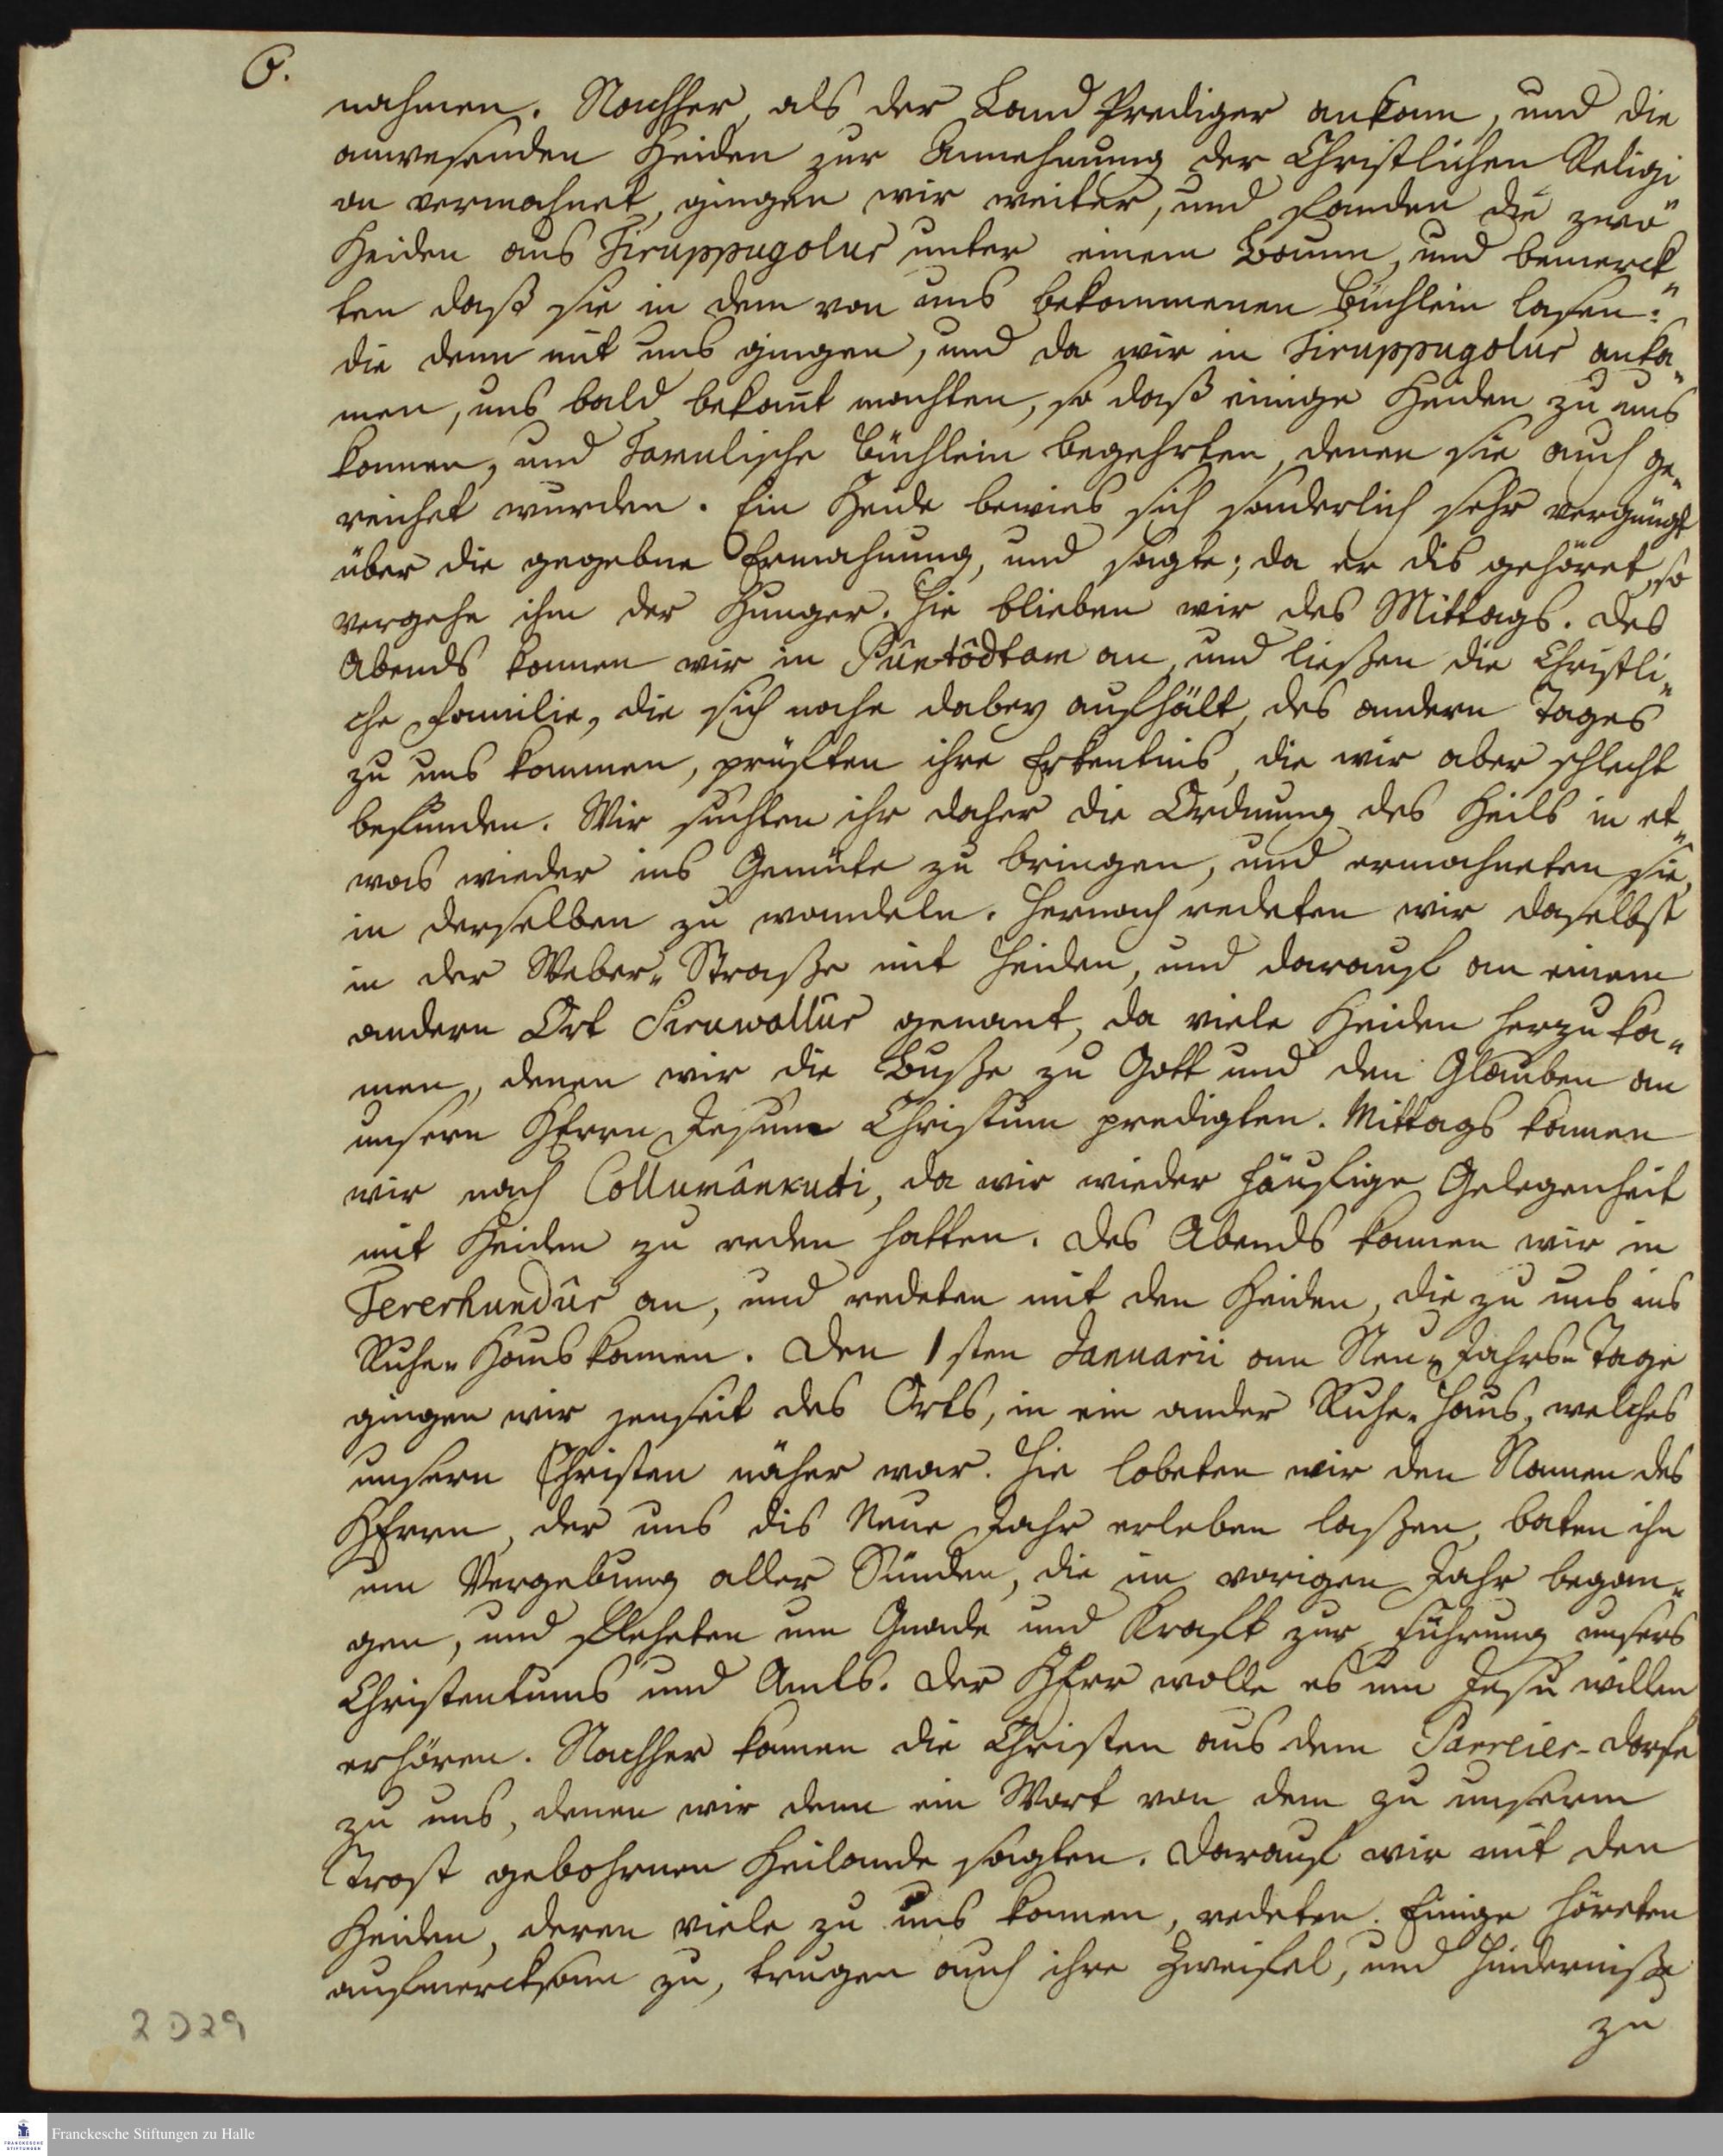 6.
nahmen. Nachher, als der Land Prediger ankam, und die
anwesenden Heiden zur Annehmung der Christlichen Religi„
on vermahnet, gingen wir weiter, und fanden die zwo
Heiden aus Tiruppugolur unter einem Baum, und bemerck„
ten daß sie in dem von uns bekommenen Büchlein lasen:
die denn mit uns gingen, und da wir in Tiruppugolur anka„
men, uns bald bekant machten, so daß einige Heiden zu uns
kamen, und Tamulische Büchlein begehrten, denen sie auch ge„
reichet wurden. Ein Heide bewies sich sonderlich sehr vergnügt
über die gegebne Ermahnung, und sagte; da er dis gehöret, so
vergehe ihm der Hunger. Hie blieben wir des Mittags. Des
Abends kamen wir in Pûntôdtam an, und ließen die Christli„
che Familie, die sich nahe dabey aufhält, des andern Tages
zu uns kommen, prüften ihre Erkentnis, die wir aber schlecht
befunden. Wir suchten ihr daher die Ordnung des Heils in et„
was wieder ins Gemüte zu bringen, und ermahneten sie,
in derselben zu wandeln. Hernach redeten wir daselbst
in der Weber„Straße mit Heiden, und darauf an einem
andern Ort Siruwallûr genant, da viele Heiden herzu ka„
men, denen wir die Buße zu Gott und den Glauben an
unsern HErrn Jesum Christum predigten. Mittags kamen
wir nach Collumânkudi, da wir wieder häufige Gelegenheit
mit Heiden zu reden hatten. Des Abends kamen wir in
Tererhundûr an, und redeten mit den Heiden, die zu uns ins
Ruhe„Haus kamen. Den 1sten Januarii am Neu„Jahrs„Tage
gingen wir jenseit des Orts, in ein ander Ruhe„Haus, welches
unsern Christen näher war. Hie lobeten wir den Namen des
HErrn, der uns dis Neue Jahr erleben laßen, baten ihn
um Vergebung aller Sünden, die im vorigen Jahr began„
gen, und fleheten um Gnade und Kraft zur Führung unsers
Christentums und Amts. Der HErr wolle es um Jesu willen
erhören. Nachher kamen die Christen aus dem Parreier-Dorfe
zu uns, denen wir denn ein Wort von dem zu unserm
Trost gebohrnen Heilande sagten. Darauf wir mit den
Heiden, deren viele zu uns kamen, redeten. Einige höreten
aufmercksam zu, trugen auch ihre Zweifel, und Hinderniße
zu
2 D29
Franckesche Stiftungen zu Halle